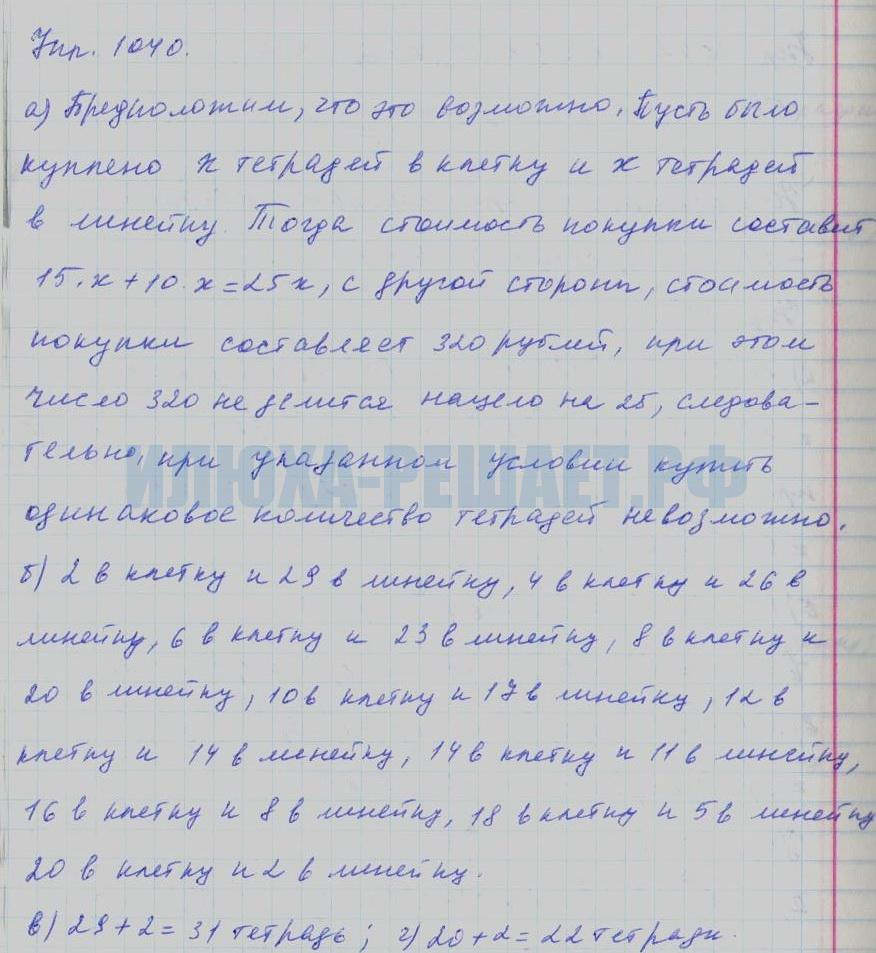 Упр. 1040.
а) Предположим, что это возможно. Пусть было
куплено x тетрадей в клетку и x тетрадей
в линейку. Тогда стоимость покупки составит
15·x+10·x=25x, с другой стороны, стоимость
покупки составляет 320 рублей, при этом
число 320 не делится нацело на 25, следова-
тельно, при указанном условии купить
ИЛЮХА-РЕШАЕТ.РФ
одинаковое количество тетрадей невозможно.
б) 2 в клетку и 29 в линейку, 4 в клетку и 26 в
линейку, 6 в клетку и 23 в линейку, 8 в клетку и
20 в линейку, 10 в клетку и 17 в линейку, 12 в
клетку и 14 в линейку, 14 в клетку и 11 в линейку,
16 в клетку и 8 в линейку, 18 в клетку и 5 в линейку
20 в клетку и 2 в линейку.
в) 29+2=31 тетрадь; г) 20+2=22 тетради.